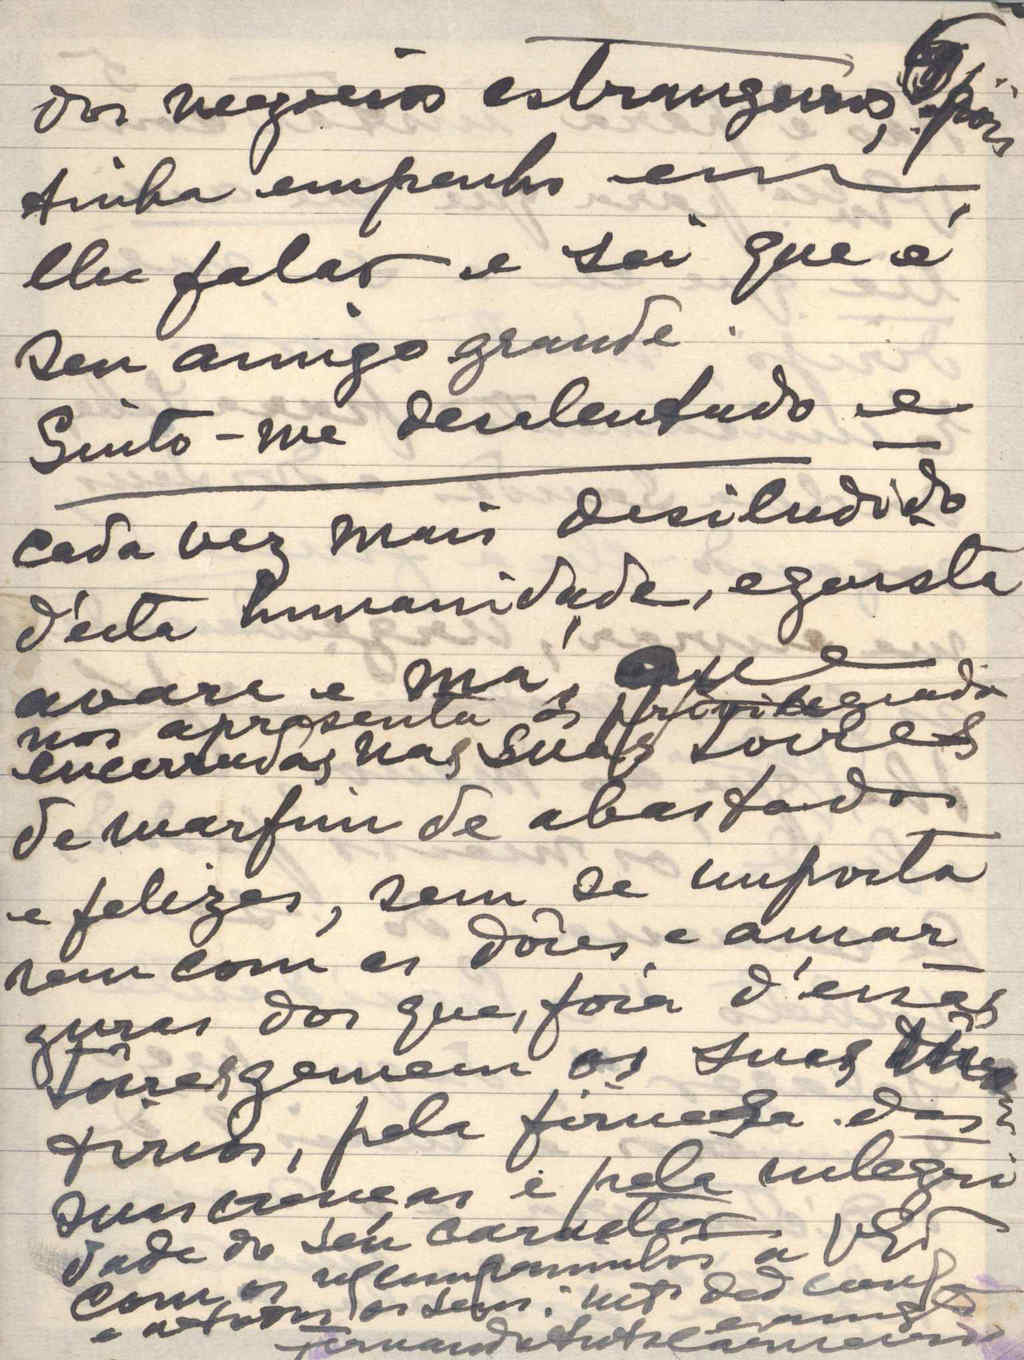 dos negocios estrangeiros, pois
tinha empenho em
lhe falar e sei que é
seu amigo grande.
Sinto-me desalentado e
cada vez mais desiludido
d'esta humanidade, egoista
avara e má, que
nos apresenta os privilegiados
encerrados nas suas torres
de marfim de abastados
e felizes, sem se importa
rem com as dôres e amar
guras dos que, fóra d'essas
torres, gemem os seus
tirios, pela firmesa das
suas crenças e pela integri
dade do seu caracter
com os cumprimentos a
e a todos os seus: mto ded
e amgo
Fernando Carneiro